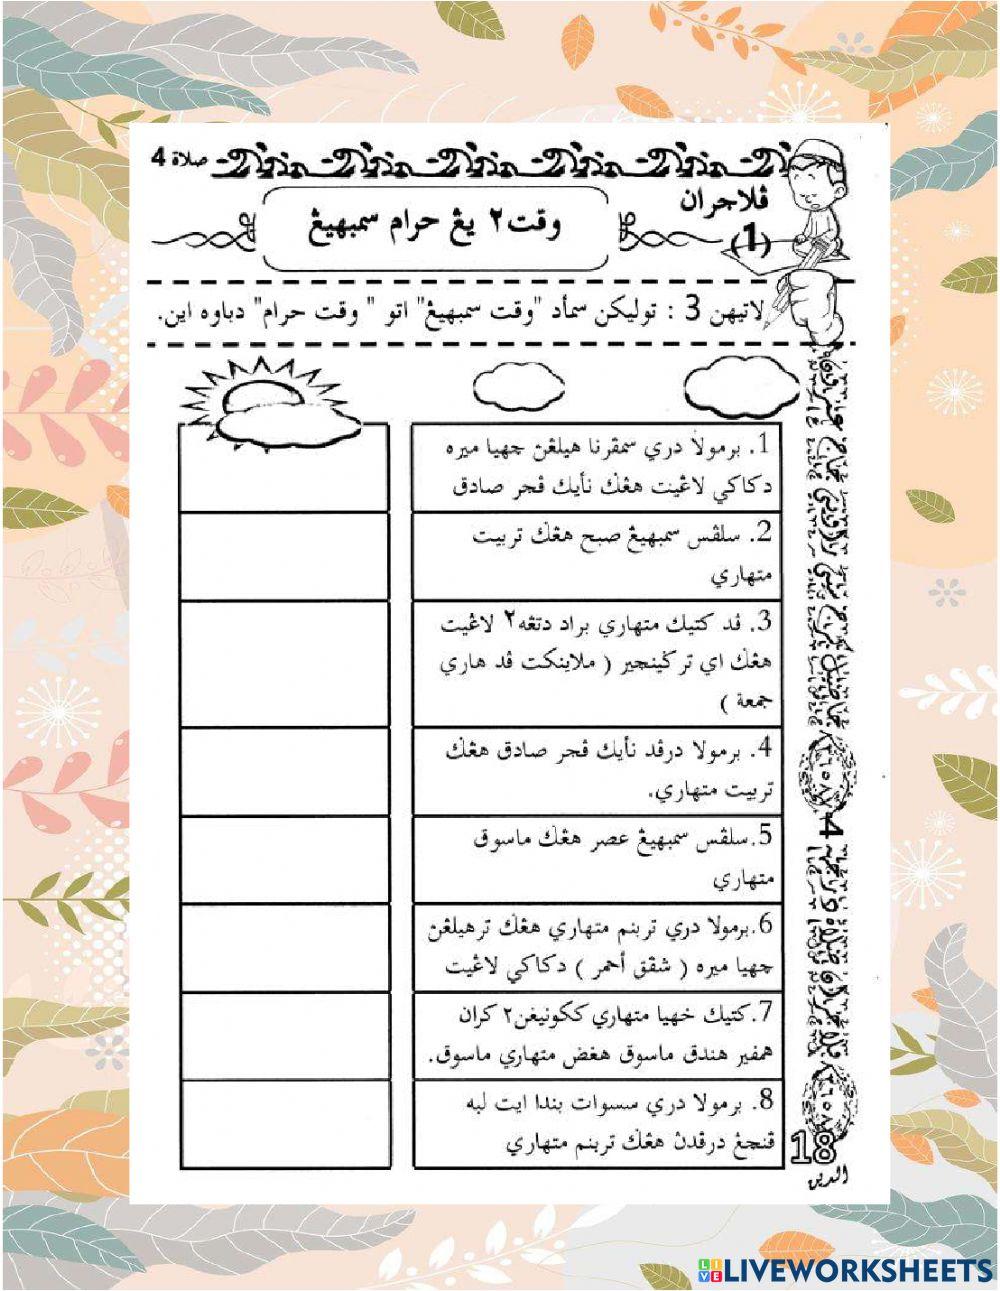 صلاة 4
ڤلاجران
(1)
وقت٢ يڠ حرام سمبهيڠ
لاتيهن 3 : توليكن سمأد "وقت سمبهيڠ" اتو " وقت حرام" دباوه اين.
1. برمولا دري سمڤرنا هيلڠن چهيا ميره
دكاكي لاڠيت هڠݢ نأيك ڤجر صادق
2. سلڤس سمبهيڠ صبح هڠݢ تربيت
متهاري
3. ڤد كتيك متهاري براد دتڠه٢ لاڠيت
هڠݢ اي ترݢلينچير ( ملاينكن ڤد هاري
جمعة )
4. برمولا درڤد نأيك ڤجر صادق هڠݢ
تربيت متهاري.
5.سلڤس سمبهيڠ عصر هڠݢ ماسوق
متهاري
6.برمولا دري تربنم متهاري هڠݢ ترهيلڠن
چهيا ميره ( شفق أحمر ) دكاكي لاڠيت
7.كتيك خهيا متهاري ككونيڠن٢ كران
همڤير هندق ماسوق هڠض متهاري ماسوق.
8. برمولا دري سسوات بندا ايت لبه
ڤنجڠ درڤدڽ هڠݢ تربنم متهاري
4
18
الدين
LIVEWORKSHEETS